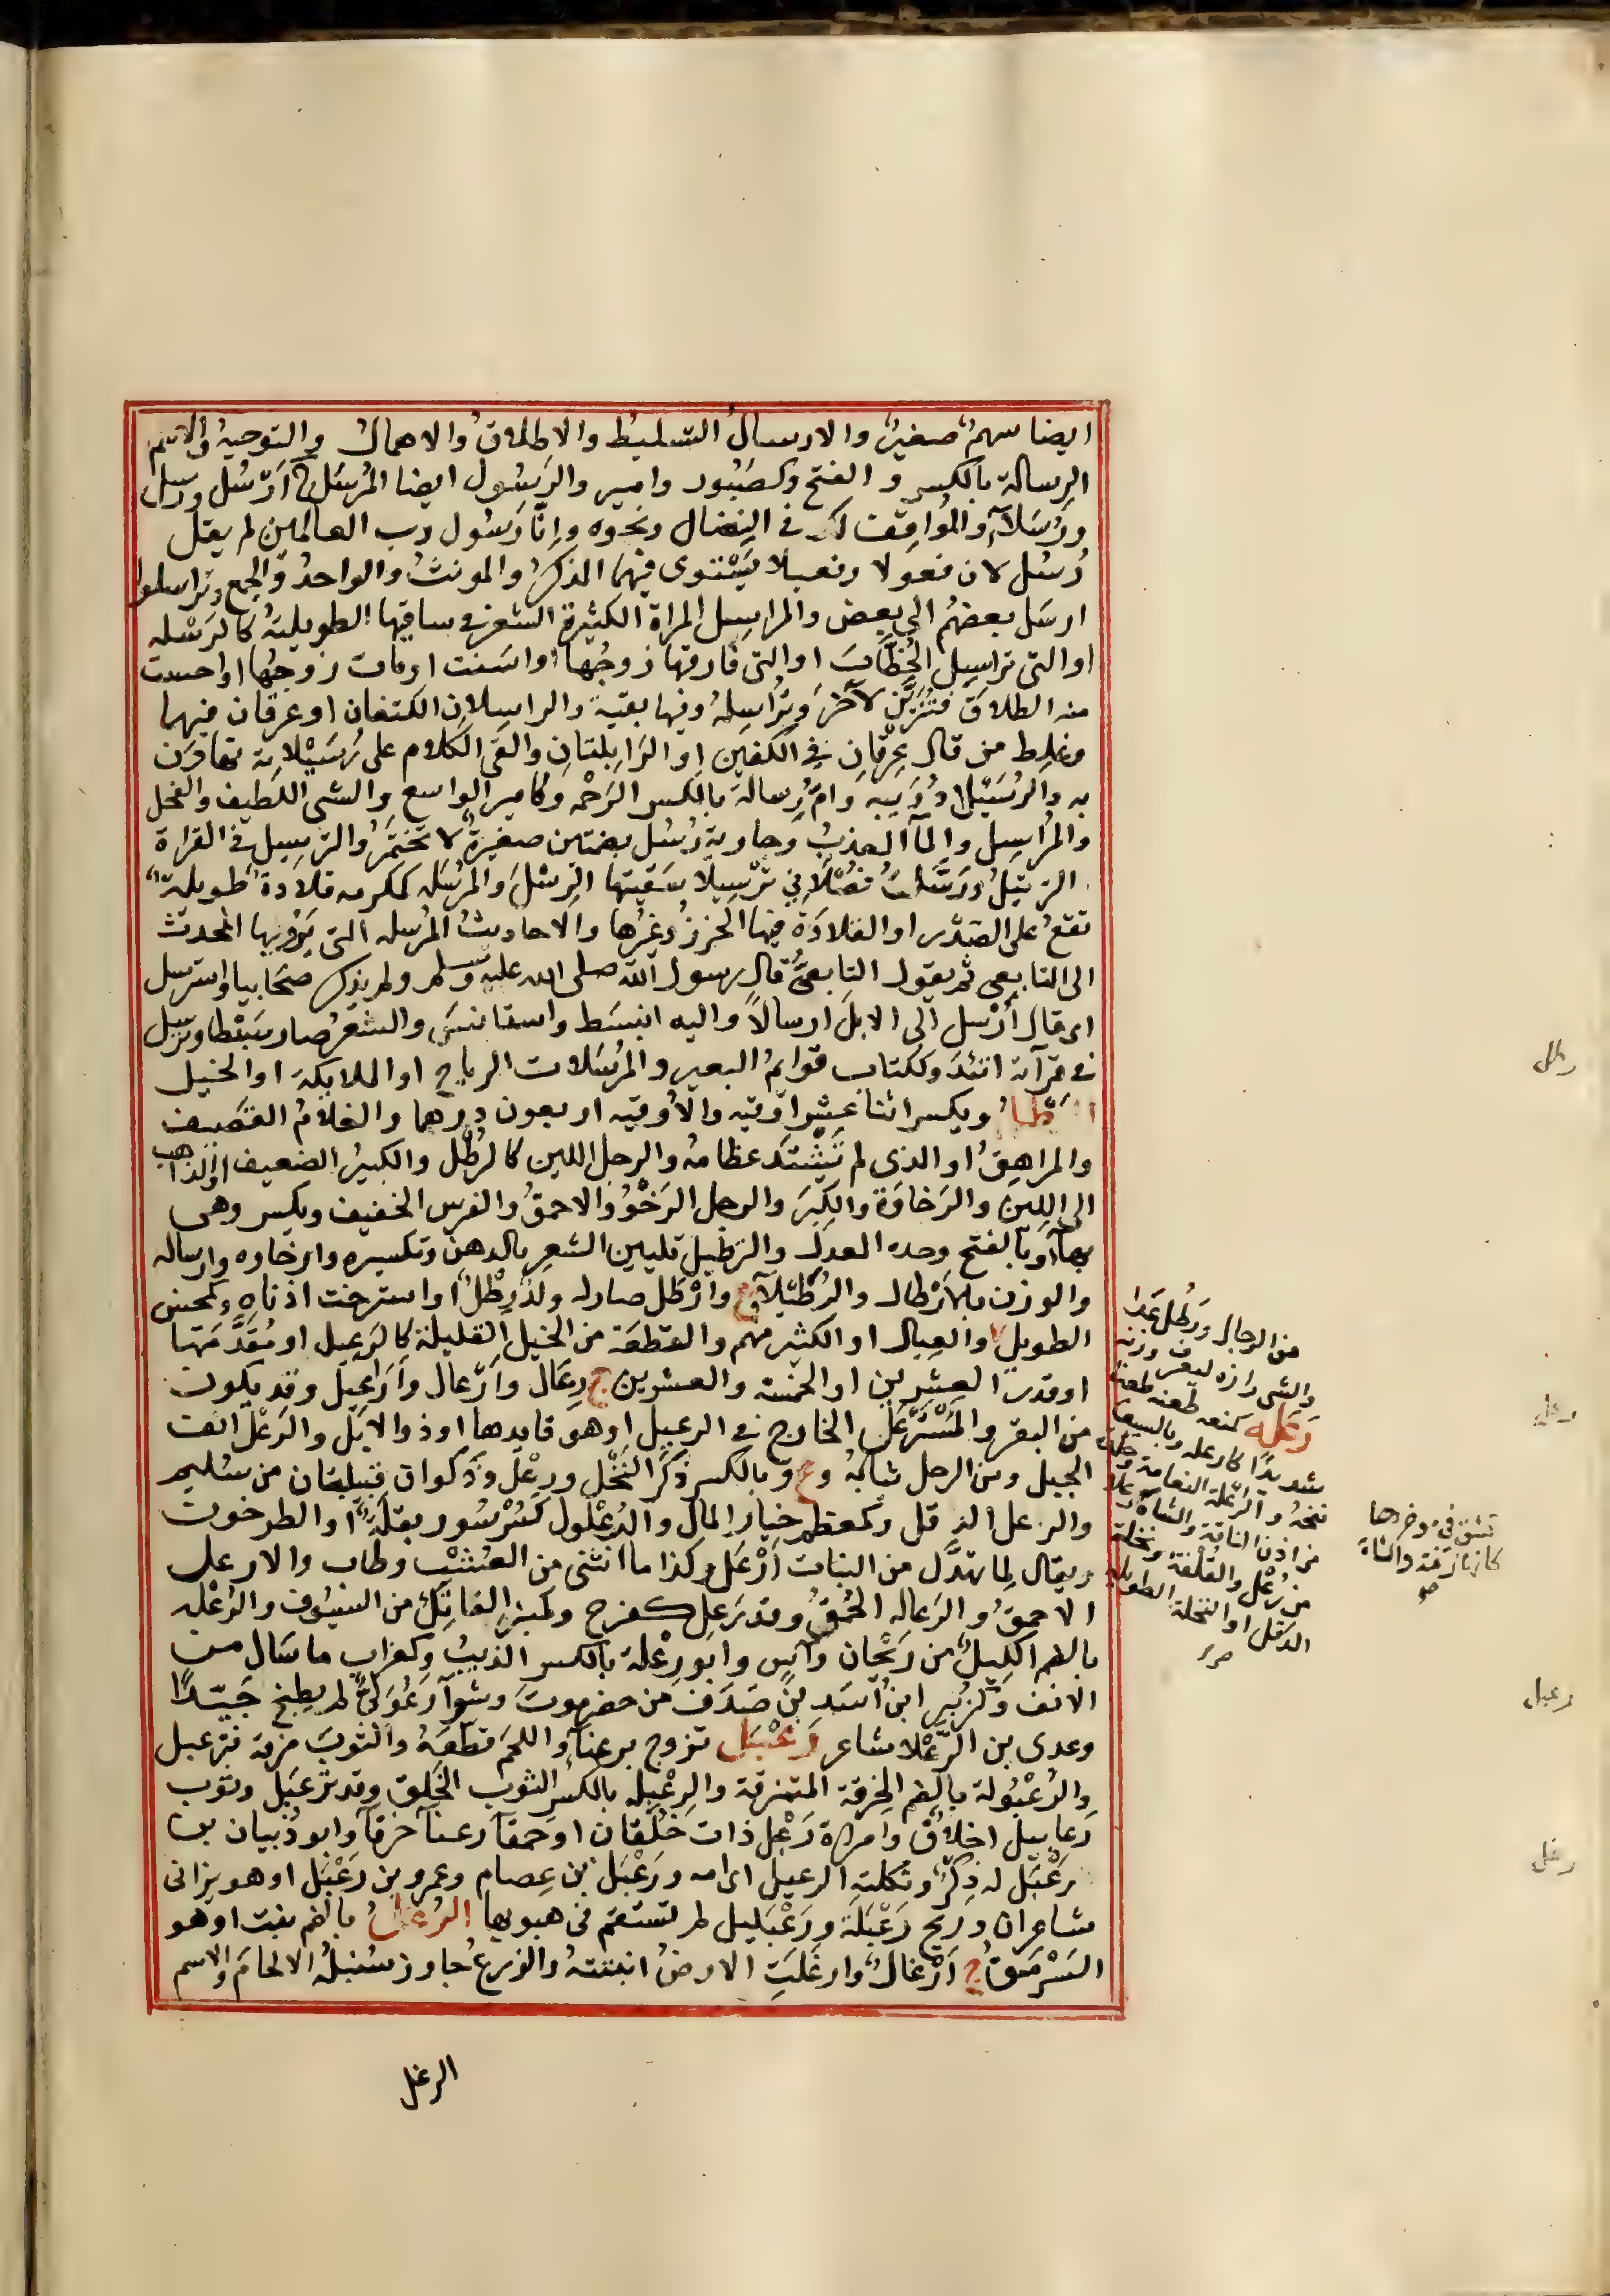 ايضا سهمٌ صغيرٌ والارسالُ التسليطُ والاطلاقُ والاهمالُ والتوجيهُ والاسم
الرسالة بالكسر والفتح وكصَبُور وامير والرَسُول ايضا المُرسَل ج أرْسُل ورسل
ورُسَلآءُ والمُوافِقُ لك في النِضال ونحوه وانّا رَسُول رب العالمين لم يقل
رُسُل لان فعولا وفعيلا يَسْتوى فيهما المذكرُ والمونثُ والواحدُ والجمع وتراسلوا
ارسَل بعضهُم الى بعض والمراسِل المراة الكثيرة الشعر في ساقيها الطويلتهُ كالرَسْله
او التى تراسِل الخُطّابَ او التى فارقها زوجُها او اسَنت او مات زوجُها او احست
منه الطلاقَ فتَزَيَّن لآخَرَ وتُراسِلهُ وفيها بقيةٌ والراسِلان الكتفان او عرقان فيهما
وغلِط من قال عِرْقانِ في الكفينِ او الرَابِلتانِ والقَى الكلام على رُسَيْلاته تهاوَن
به والرُسَيْلآ دُوَيبه وامّ رِسالةَ بالكسر الرَخْمه وكامير الواسع والشى اللطيف والفحل
والمُراسِل والمآ العذبُ وجارية رُسُل بضمتين صغيرةٌ لا تختمرُ والترسِيل في القراة
الترتيلُ ورَسَّلتُ فُصْلانِى ترْسِيلا سَقيتها الرِسْلَ والمُرْسَله كمكرمه قلادة طويلةٌ
تقعُ على الصَدْر او القلادَة فيها الخرزُ وغيرُها والاحاديثُ المُرسله التى يَرْوِيها المحدث
الى التابعى ثم يقول التابعىُّ قال رسول الله صلى الله عليه وسلم ولم يذكر صَحَابيا واسترسل
اى قال أرْسل الى الابلَ ارسالاً واليه انبسَط واستانسَ والشعرُ صار سَبْطا وترسل
في قرآته اتئدَ وككتاب قوائمُ البعير والمُرسَلات الرياح او الملايكة او الخيل
الرَّطلُ ويكسر اثنا عشرا وقيه والأُوقيه اربعون درهما والغلامُ القضيف
والمراهقُ او الذى لم تَشْتدَ عظامهُ والرجل اللين كالرَطْل والكبيرُ الضعيف او الذاهب
الى اللين والرَخاوَة والكِبَر والرجل الرَخْوُ والاحمقُ والفرس الخفيف ويكسر وهى
بهآء وبالفتح وحده العدل والترطيل تليين الشعر بالدهن وتكسيره وارخاوه وارساله
والوزن بالأرْطال والرُطَيْلآ ع وارْطَل صار له ولدٌ رِطْلٌ او استرخت اذناه وكمحسن
الطويل والعيال او الكثير منهم والقطعَة من الخيل القليلة كالرَعِيل او مُقدَّمتها
او قدرُ العِشرين او الخمسة والعشرين ج رِعَال وأرْعال وأراعِيل وقد يكون
من البقر والمُسْتَرْعل الخارج في الرعيل او هو قايدها او ذو الابل والرَعْل انف
الجبل ومن الرجل ثيابُهُ وع وبالكسر ذكَرُ النَخْل ورِعْل وذَكوان قبيلتان من سُليم
والرعل الذ قل وكمعظم خيار المال والرُعْلُول كسُرْسُور بقلَةٌ او الطرخون
ويقال لِما تهدَّل من النبات أرْعَل وكذا ما انثنى من العُشْب وطاب والارعل
الاحمق والرَعاله الحُمْقُ وقد رَعِل كفرح وكمنبر القاتِل من السُيوف والرُعْله
بالضم اكليلٌ من رَيْحان وآسٍ وابو رِعْلة بالكسر الذيبُ وكغراب ما سَال من
الانف وكزُبير ابنُ اسَد بنِ صَدَف من حضرموت وشوآ رَعْوَلىٌّ لم يطبخ جَيّدًا
وعدى بن الرَّعْلآ شاعر رَعْبَل تزوج برعنآ واللحمَ قطّعَهُ والثوبَ مزقه فترعبل
والرُعْبُولة بالضم الخِرقة المتمزقة والرِعْبِله بالكسر الثوب الخَلِق وقد ترعبَل وثوب
رَعابيل اخلاقٌ وامراة رَعْبَل ذات خُلْقان او حمقآ رعنآ خرقآ وابو ذُبيان بن
رَعْبَل له ذِكرٌ وثكلته الرعبل اى امه ورَعْبَل بن عِصام وعمرو بن رَعْبَل او هو بزاى
شاعران وريح رَعْبَلة ورَعْبَليل لم تستقم في هبوبها الرُغْلُ بالضم نبت او هو
السَرْمَقُ ج أرْغَالٌ وارغَلَتِ الارضُ انبتتهُ والزرعُ جاوز سُنبلُه الالحامَ والاسم
الرغل
من الرجال ورَطَل عَدا
والشى رازه ليعرف وزنه
رَعَله كنعه طعنه طعنا
شديدًا كارعله وبالسيف
نفحهُ والرَّعْلة النعامة وجلدة
من اذن الناقة والشاة
تشق في موخرها
كانها زنمة والشاة
من رُعْل والقُلْفة ونخلة
الدقل او النخلة الطويلة
رطل
رعل
رعبل
رغل